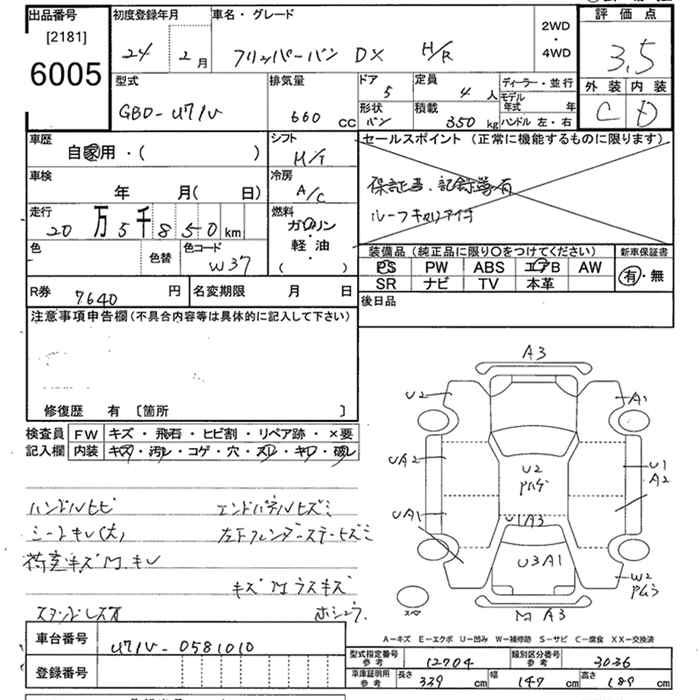 出品番号 初度登録年月 車名・グレード 2WD・4WD 評価点
[2181]
6005 24 2月 フリッパーバン DX H/R 3.5
型式 排気量 ドア 5 定員 4人 ディーラー・並行 外装 内装
モデル年式 年
GBD-U71V 660 CC 形状 バン 積載 350kg ハンドル 左・右 C D
車歴 自家用・( ) シフト M/T セールスポイント (正常に機能するものに限ります)
車検 年 月( 日) 冷房 A/C 保証書・記録簿有
走行 20万5千850km 燃料 ガソリン・軽油 ( ) ルーフキャリア付
色 色替 色コード W37
装備品 (純正品に限り○をつけてください) 新車保証書
PS PW ABS エアB AW 有・無
SR ナビ TV 本革
R券 7640円 名変期限 月 日 後日品
注意事項申告欄(不具合内容等は具体的に記入して下さい)
修復歴 有 [箇所 ]
検査員 FW キズ・飛石・ヒビ割・リペア跡・×要
記入欄 内装 キズ・汚レ・コゲ・穴・スレ・キレ・破レ
ハンドルヒビ エンドパネルヒズミ
シートキレ(大) 左下フレンダーステーヒズミ
荷室キズM.キレ
A3
U2 A1
UA2 U2 U1
A2
UA1 U1A3
U3A1
W2
M A3
A-キズ E-エクボ U-凹み W-補修跡 S-サビ C-腐食 XX-交換済
車台番号 U71V-0581010
登録番号
型式指定番号 参考 12704 類別区分番号 参考 3036
車庫証明用 参考 長さ 339 cm 幅 147 cm 高さ 189 cm